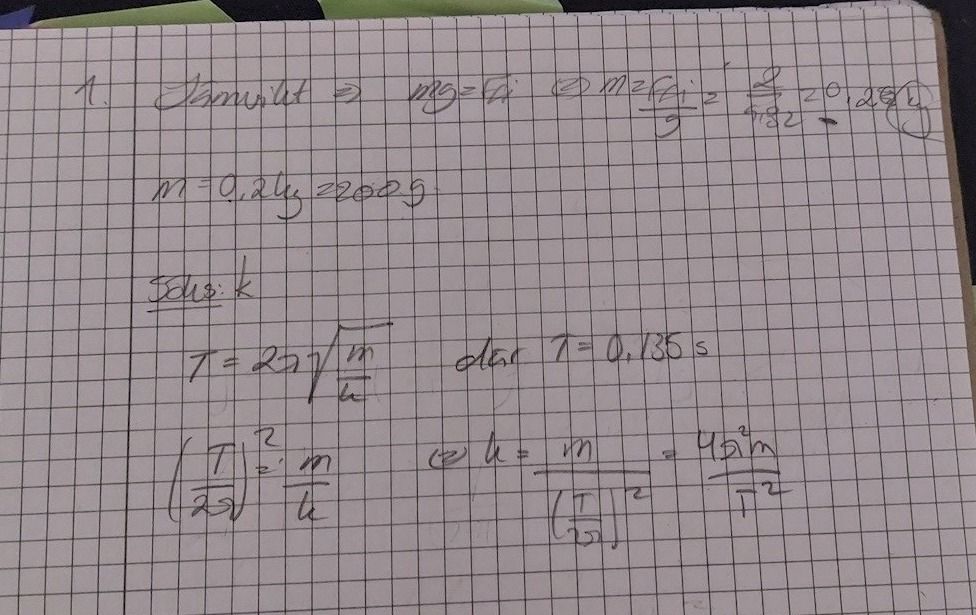 1. Jämvikt ⇒ mg = F_fj ⇔ m = F_fj/g = 2/9,82 = 0,20 kg
m = 0,2 kg = 200 g
Söks: k
T = 2π√(m/k) där T = 0,135 s
(T/2π)² = m/k ⇔ k = m/(T/2π)² = 4π²m/T²